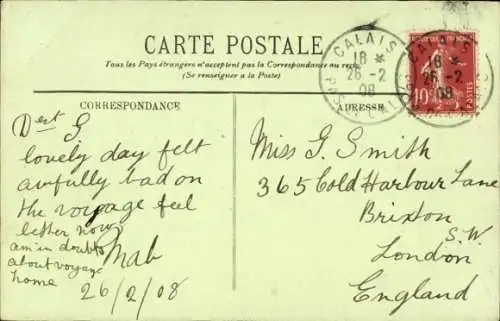 CARTE POSTALE
Tous les Pays étrangers n'acceptent pas la Correspondance au recto
(Se renseigner à la Poste)
CORRESPONDANCE
ADRESSE
CALAIS
18
26-2
08
PAS-DE-CALAIS
CALAIS
18
26-2
08
10
POSTES
Dest G
lovely day felt
awfully bad on
the voyage feel
better now
am in doubts
about voyage
home
Mab
26/2/08
Miss G. Smith
365 Cold Harbour Lane
Brixton
S.W.
London
England